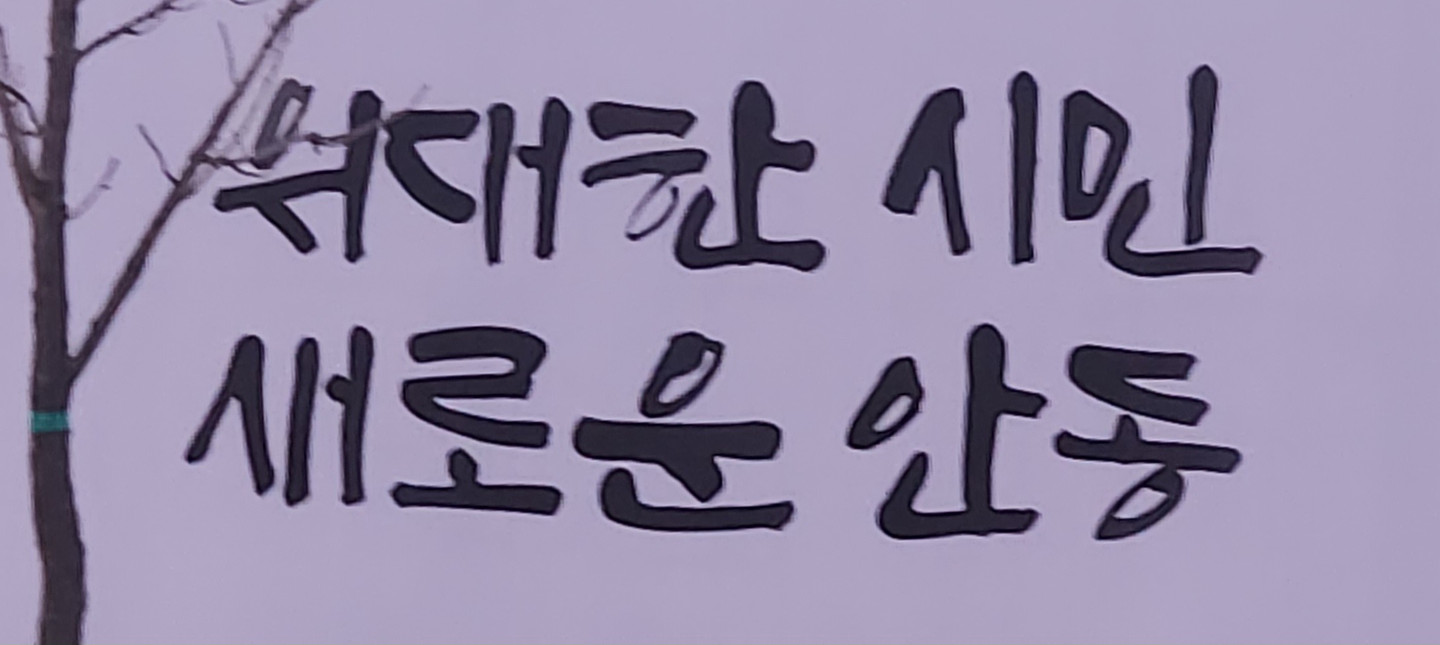 위대한 시민
새로운 안동